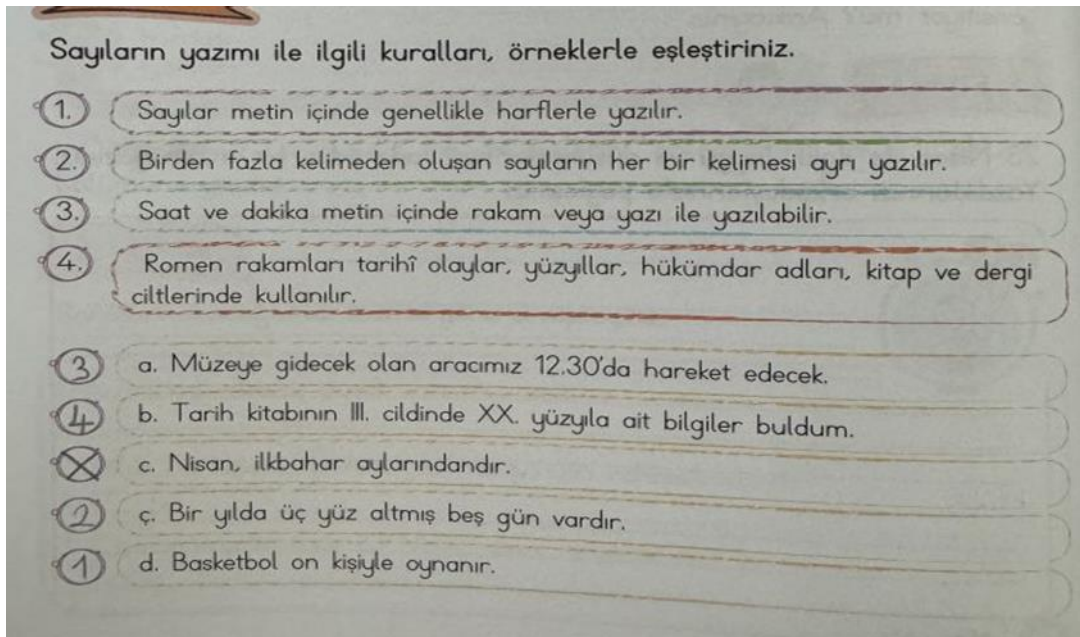 Sayıların yazımı ile ilgili kuralları, örneklerle eşleştiriniz.
1. Sayılar metin içinde genellikle harflerle yazılır.
2. Birden fazla kelimeden oluşan sayıların her bir kelimesi ayrı yazılır.
3. Saat ve dakika metin içinde rakam veya yazı ile yazılabilir.
4. Romen rakamları tarihî olaylar, yüzyıllar, hükümdar adları, kitap ve dergi
ciltlerinde kullanılır.
3 a. Müzeye gidecek olan aracımız 12.30'da hareket edecek.
4 b. Tarih kitabının III. cildinde XX. yüzyıla ait bilgiler buldum.
X c. Nisan, ilkbahar aylarındandır.
2 ç. Bir yılda üç yüz altmış beş gün vardır.
1 d. Basketbol on kişiyle oynanır.